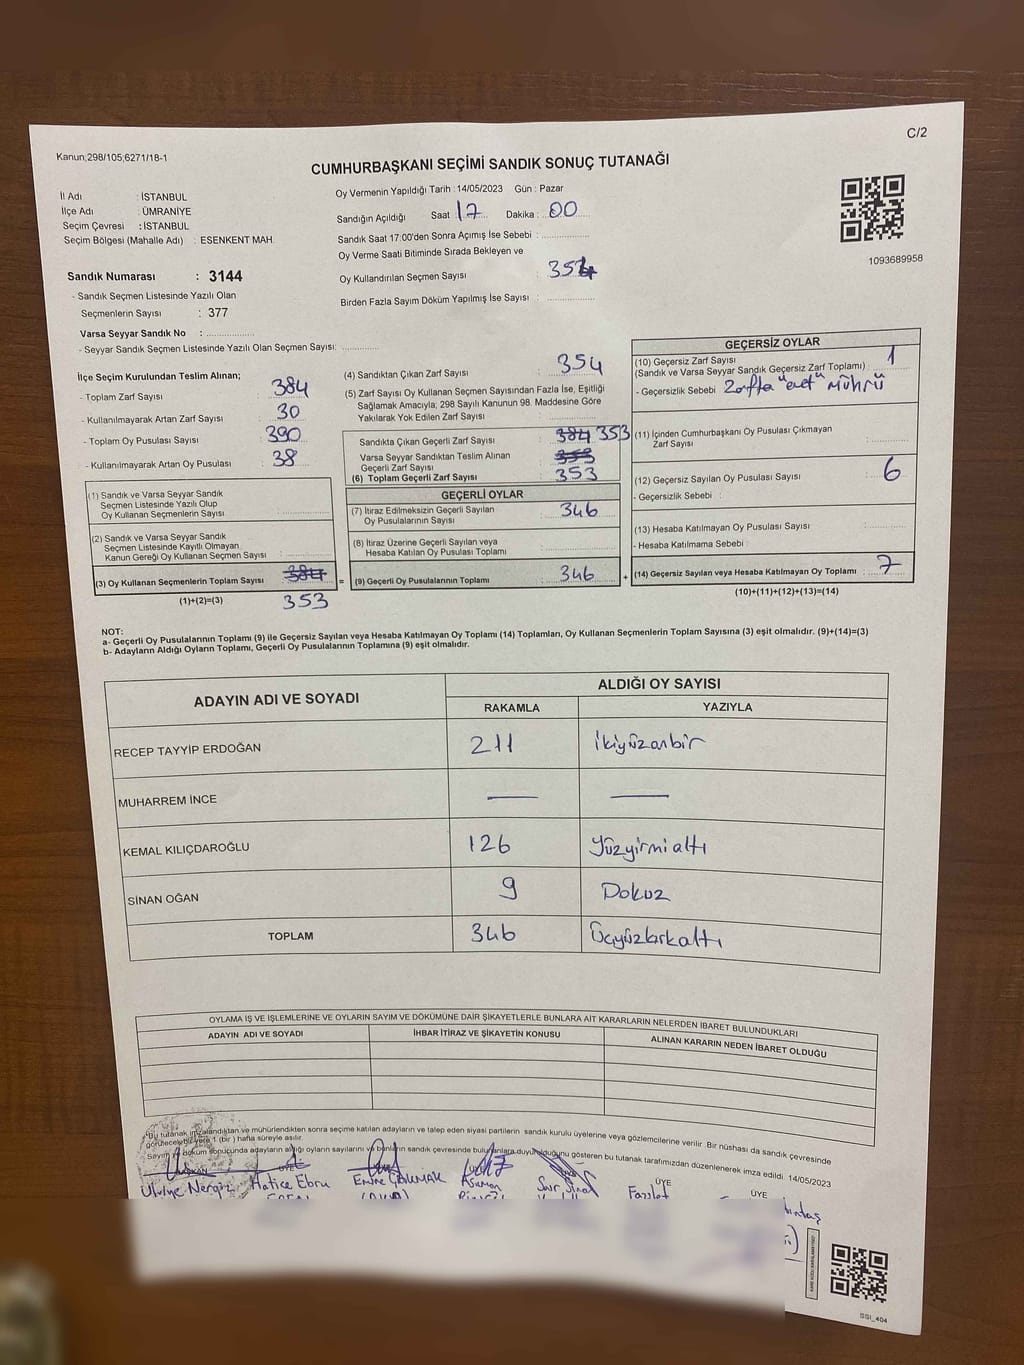 C/2
Kanun;298/105;6271/18-1
CUMHURBAŞKANI SEÇİMİ SANDIK SONUÇ TUTANAĞI
İl Adı : İSTANBUL
İlçe Adı : ÜMRANİYE
Seçim Çevresi : İSTANBUL
Seçim Bölgesi (Mahalle Adı) : ESENKENT MAH.
Sandık Numarası : 3144
- Sandık Seçmen Listesinde Yazılı Olan
Seçmenlerin Sayısı : 377
Varsa Seyyar Sandık No :
- Seyyar Sandık Seçmen Listesinde Yazılı Olan Seçmen Sayısı:
Oy Vermenin Yapıldığı Tarih : 14/05/2023 Gün : Pazar
Sandığın Açıldığı Saat 17 Dakika : 00
Sandık Saat 17:00'den Sonra Açımış İse Sebebi :
Oy Verme Saati Bitiminde Sırada Bekleyen ve
Oy Kullandırılan Seçmen Sayısı : 354
Birden Fazla Sayım Döküm Yapılmış İse Sayısı :
1093689958
İlçe Seçim Kurulundan Teslim Alınan;
- Toplam Zarf Sayısı : 384
- Kullanılmayarak Artan Zarf Sayısı : 30
- Toplam Oy Pusulası Sayısı : 390
- Kullanılmayarak Artan Oy Pusulası : 38
(1) Sandık ve Varsa Seyyar Sandık
Seçmen Listesinde Yazılı Olup
Oy Kullanan Seçmenlerin Sayısı :
(2) Sandık ve Varsa Seyyar Sandık
Seçmen Listesinde Kayıtlı Olmayan
Kanun Gereği Oy Kullanan Seçmen Sayısı :
(3) Oy Kullanan Seçmenlerin Toplam Sayısı : 384
(1)+(2)=(3) 353
(4) Sandıktan Çıkan Zarf Sayısı : 354
(5) Zarf Sayısı Oy Kullanan Seçmen Sayısından Fazla İse, Eşitliği
Sağlamak Amacıyla, 298 Sayılı Kanunun 98. Maddesine Göre
Yakılarak Yok Edilen Zarf Sayısı :
Sandıkta Çıkan Geçerli Zarf Sayısı : 384 353
Varsa Seyyar Sandıktan Teslim Alınan
Geçerli Zarf Sayısı : 353
(6) Toplam Geçerli Zarf Sayısı : 353
GEÇERLİ OYLAR
(7) İtiraz Edilmeksizin Geçerli Sayılan
Oy Pusulalarının Sayısı : 346
(8) İtiraz Üzerine Geçerli Sayılan veya
Hesaba Katılan Oy Pusulası Toplamı :
= (9) Geçerli Oy Pusulalarının Toplamı : 346 +
GEÇERSİZ OYLAR
(10) Geçersiz Zarf Sayısı : 1
(Sandık ve Varsa Seyyar Sandık Geçersiz Zarf Toplamı)
- Geçersizlik Sebebi Zarfta "evet" mührü
(11) İçinden Cumhurbaşkanı Oy Pusulası Çıkmayan
Zarf Sayısı :
(12) Geçersiz Sayılan Oy Pusulası Sayısı : 6
- Geçersizlik Sebebi :
(13) Hesaba Katılmayan Oy Pusulası Sayısı :
- Hesaba Katılmama Sebebi :
(14) Geçersiz Sayılan veya Hesaba Katılmayan Oy Toplamı : 7
(10)+(11)+(12)+(13)=(14)
NOT:
a- Geçerli Oy Pusulalarının Toplamı (9) ile Geçersiz Sayılan veya Hesaba Katılmayan Oy Toplamı (14) Toplamları, Oy Kullanan Seçmenlerin Toplam Sayısına (3) eşit olmalıdır. (9)+(14)=(3)
b- Adayların Aldığı Oyların Toplamı, Geçerli Oy Pusulalarının Toplamına (9) eşit olmalıdır.
ADAYIN ADI VE SOYADI ALDIĞI OY SAYISI
RAKAMLA YAZIYLA
RECEP TAYYİP ERDOĞAN 211 ikiyüzonbir
MUHARREM İNCE — —
KEMAL KILIÇDAROĞLU 126 Yüzyirmialtı
SİNAN OĞAN 9 Dokuz
TOPLAM 346 Üçyüzkırkaltı
OYLAMA İŞ VE İŞLEMLERİNE VE OYLARIN SAYIM VE DÖKÜMÜNE DAİR ŞİKAYETLERLE BUNLARA AİT KARARLARIN NELERDEN İBARET BULUNDUKLARI
ADAYIN ADI VE SOYADI İHBAR İTİRAZ VE ŞİKAYETİN KONUSU ALINAN KARARIN NEDEN İBARET OLDUĞU
"Bu tutanak imzalandıktan ve mühürlendikten sonra seçime katılan adayların ve talep eden siyasi partilerin sandık kurulu üyelerine veya gözlemcilerine verilir. Bir nüshası da sandık çevresinde
görülecek bir yere 1 (bir) hafta süreyle asılır.
Sayım ve döküm sonucunda adayların aldığı oyların sayılarını ve bunların sandık çevresinde bulunanlara duyurulduğunu gösteren bu tutanak tarafımızdan düzenlenerek imza edildi. 14/05/2023
BAŞKAN ÜYE ÜYE ÜYE
Ulviye Nergiz Hatice Ebru Emine Asuman
SSI_404